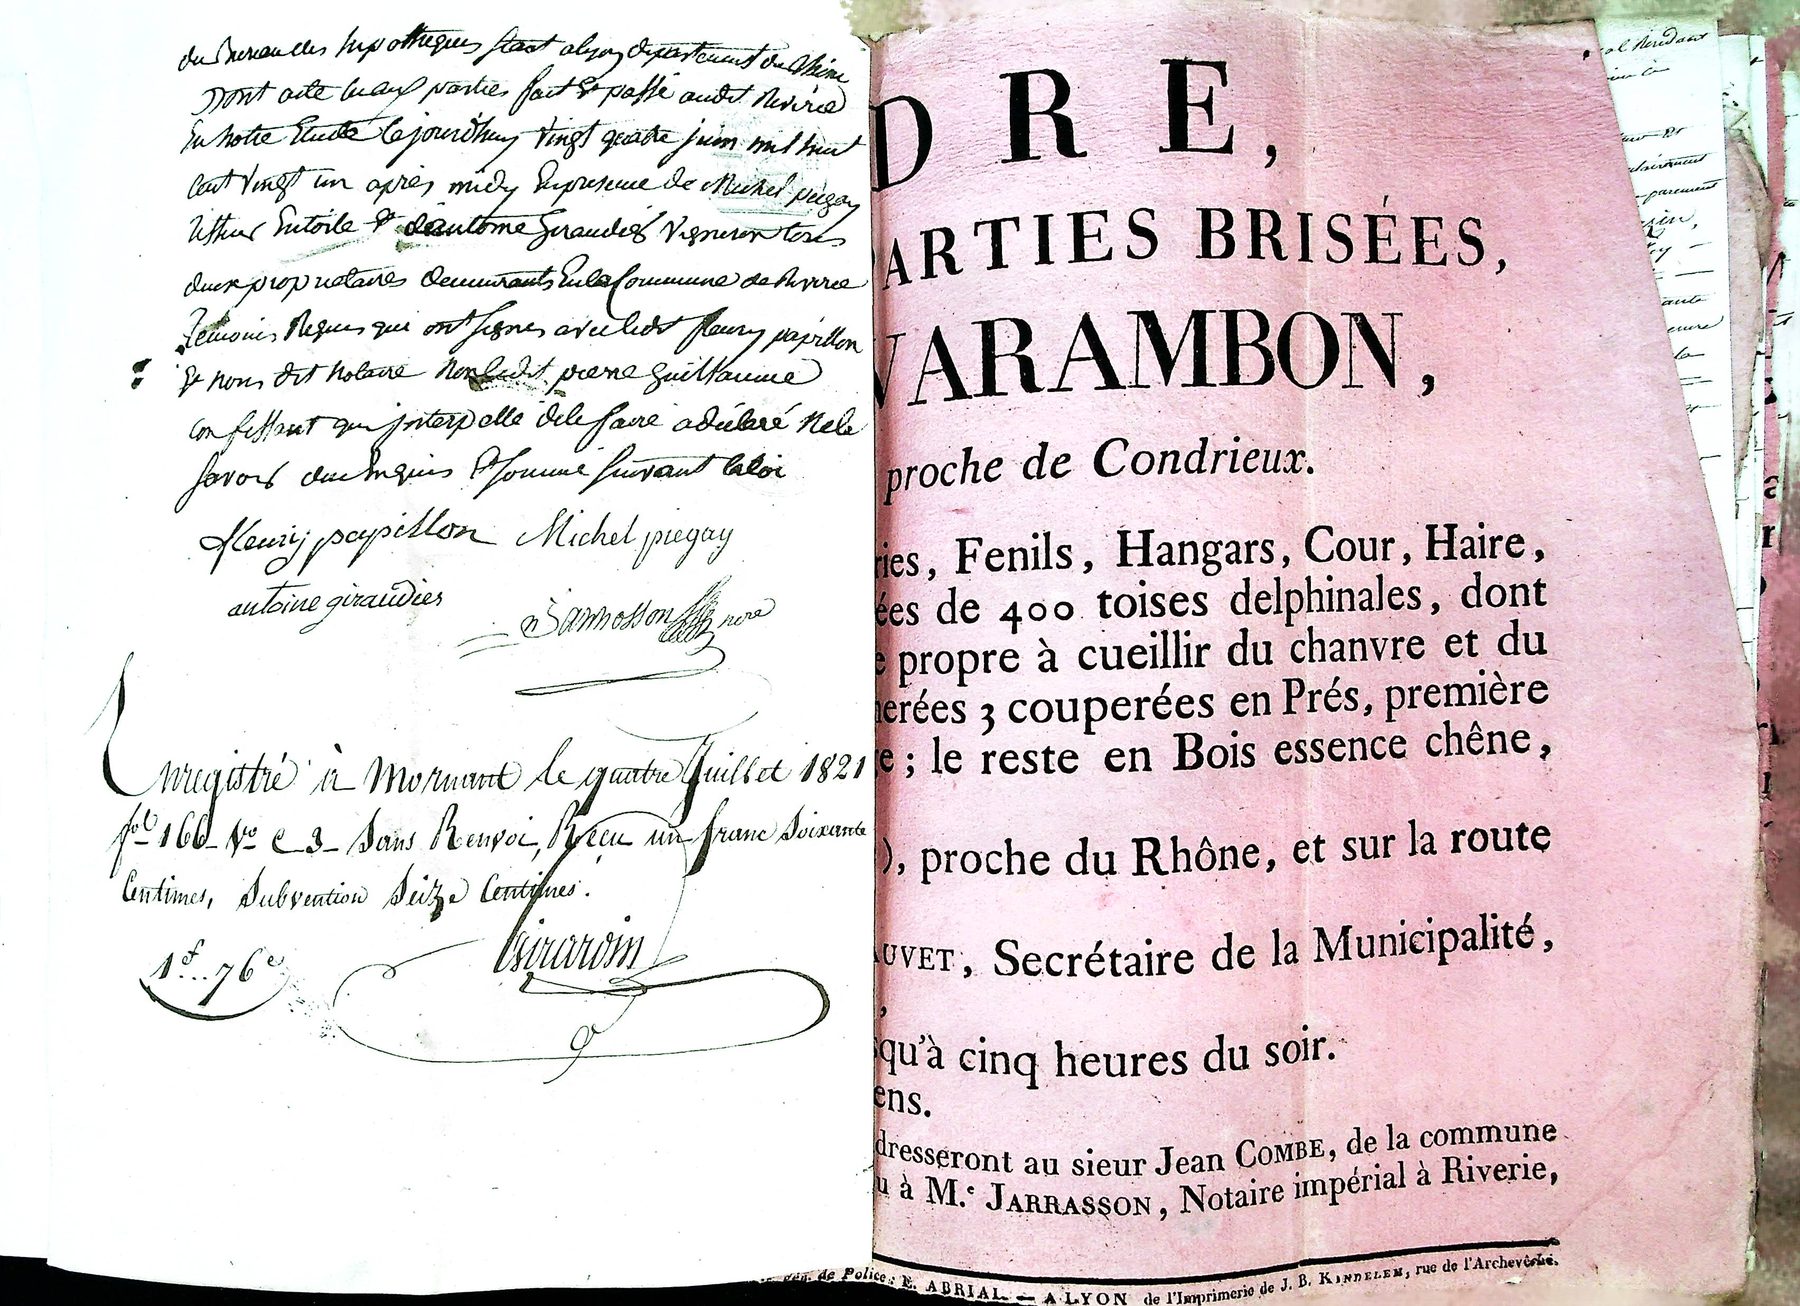 du Bureau des hypothèques séant a lyon departement du Rhône
Dont acte lu aux parties fait et passé audit Riverie
En notre Etude cejourdhuy vingt quatre juin mil huit
cent vingt un apres midy En presence de Michel piegay
tisseur En toile et d'antoine Giraudier Vigneron tous
deux proprietaires demeurants En la Commune de Riverie
Temoins Requis qui ont signes avec ledt fleury papillon
Et nous dit notaire non ledit pierre guillaume
confessant qui interpellé dele faire a déclaré Nele
savoir de ce Enquis et sommé suivant laloi
fleury papillon Michel piegay
antoine giraudier
Jarrosson nore
Enregistré à Mornant le quatre Juillet 1821
fol 166 Vo C 3 Sans Renvoi, Reçu un franc Soixante
Centimes, Subvention Seize Centimes.
Girardin
1f..76c
DRE,
PARTIES BRISÉES,
VARAMBON,
proche de Condrieux.
ries, Fenils, Hangars, Cour, Haire,
ées de 400 toises delphinales, dont
e propre à cueillir du chanvre et du
erées 3 couperées en Prés, première
e ; le reste en Bois essence chêne,
), proche du Rhône, et sur la route
AUVET, Secrétaire de la Municipalité,
,
squ'à cinq heures du soir.
ens.
dresseront au sieur Jean COMBE, de la commune
u à M.e JARRASSON, Notaire impérial à Riverie,
gén. de Police: E. ABRIAL. — A LYON de l'Imprimerie de J. B. KINDELEM, rue de l'Archevêché.